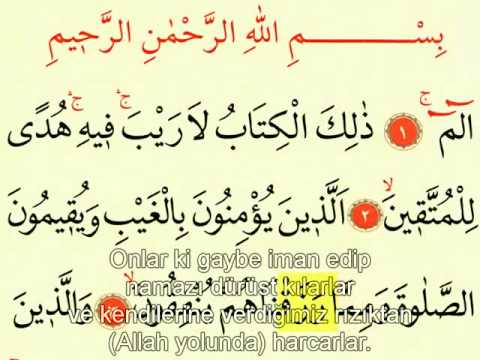 بِسْــــــــمِ اللهِ الرَّحْمٰنِ الرَّحِيمِ
الٓمٓ ۚ ﴿١﴾ ذٰلِكَ الْكِتَابُ لَا رَيْبَ ۚ فِيهِ ۚ هُدًى
لِلْمُتَّقِينَ ۙ ﴿٢﴾ اَلَّذِينَ يُؤْمِنُونَ بِالْغَيْبِ وَيُقِيمُونَ
الصَّلٰوةَ وَمِمَّا رَزَقْنَاهُمْ يُنْفِقُونَ ۙ ﴿٣﴾ وَالَّذِينَ
Onlar ki gaybe iman edip
namazı dürüst kılarlar
ve kendilerine verdiğimiz rızıktan
(Allah yolunda) harcarlar.